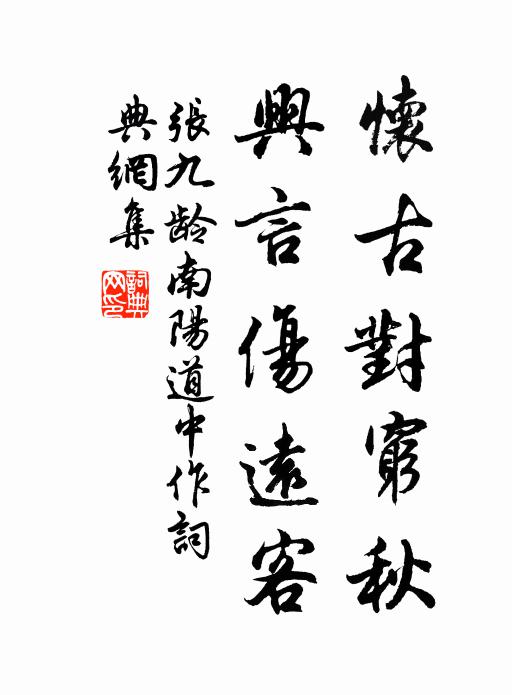 懷古對窮秋
興言傷遠客
張九齡南陽道中作詞
典網集
詞典网印